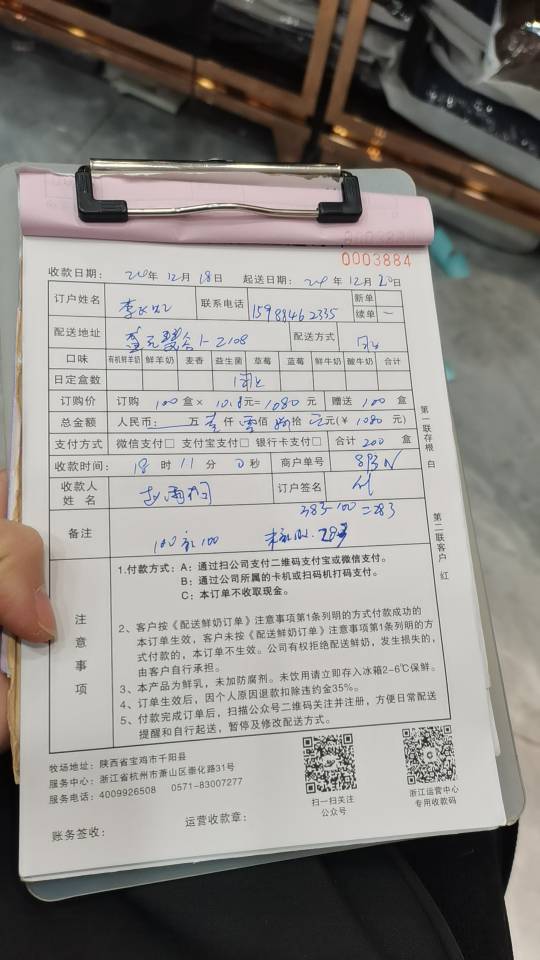 0003884
收款日期： 24年 12月 18日 起送日期： 24年 12月 20日
订户姓名 联系电话 15988462335 新单
续单 一
配送地址 1-2108 配送方式
口味 有机鲜羊奶 鲜羊奶 麦香 益生菌 草莓 蓝莓 鲜牛奶 酸牛奶 合计
日定盒数
订购价 订购 100 盒× 10.8元=1080元 赠送 100 盒
总金额 人民币： 万 壹仟 零佰 捌拾 元(￥ 1080 元)
支付方式 微信支付□ 支付宝支付□ 银行卡支付□ 合计 200 盒
收款时间： 18 时 11 分 0秒 商户单号
收款人姓名 订户签名
备注 383-100=283
100 100 283
第一联存根 白
第二联客户 红
注意事项
1.付款方式：A：通过扫公司支付二维码支付宝或微信支付。
B：通过公司所属的卡机或扫码机打码支付。
C：本订单不收取现金。
2、客户按《配送鲜奶订单》注意事项第1条列明的方式付款成功的
本订单生效，客户未按《配送鲜奶订单》注意事项第1条列明的方
式付款的，本订单不生效。公司有权拒绝配送鲜奶，发生损失的，
由客户自行承担。
3、本产品为鲜乳，未加防腐剂。未饮用请立即存入冰箱2-6℃保鲜。
4、订单生效后，因个人原因退款扣除违约金35%。
5、付款完成订单后，扫描公众号二维码关注并注册，方便日常配送
提醒和自行起送，暂停及修改配送方式。
牧场地址：陕西省宝鸡市千阳县
服务中心：浙江省杭州市萧山区崇化路31号
服务电话：4009926508 0571-83007277
扫一扫关注
公众号
浙江运营中心
专用收款码
账务签收： 运营收款章：